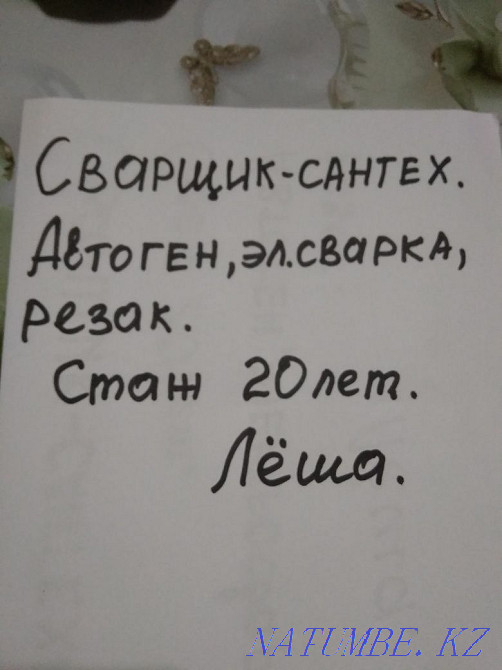 Сварщик-сантех.
Автоген, эл.сварка,
резак.
Стаж 20 лет.
Лёша.
NATUMBE.KZ